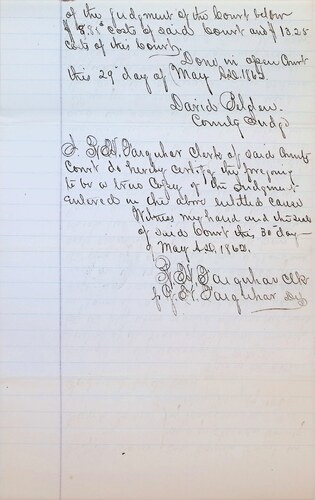 of the judgment of the Court below
$ 8.85 costs of said Court and $ 13.25
costs of this Court.
Done in open Court
this 29 day of May A.D. 186
David
County Judge
I R. H. Farquhar Clerk of said County
Court do hereby certify the foregoing
to be a true Copy of the Judgment
entered in the above entitled cause
Witness my hand and the seal
of said Court this 30 day
of May A.D. 186
R. H. Farquhar Clk
p J. H. Farquhar Dep